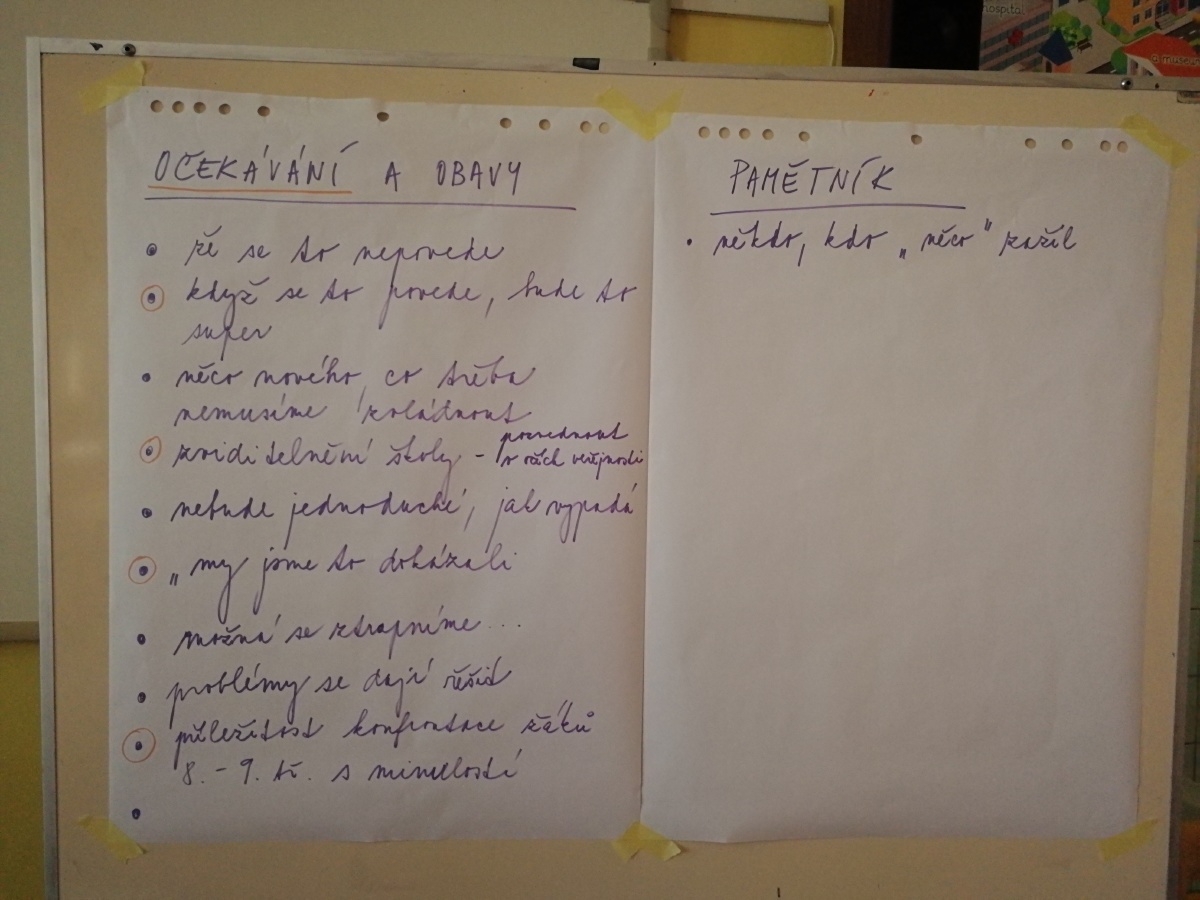 hospital
a museum
OČEKÁVÁNÍ A OBAVY
• že se to nepovede
• když se to povede, bude to
super
• něco nového, co třeba
nemusíme zvládnout
• zviditelnění školy - pozvednout
v očích veřejnosti
• nebude jednoduché, jak vypadá
• „my jsme to dokázali
• možná se ztrapníme...
• problémy se dají řešit
• příležitost konfrontace žáků
8. - 9. tř. s minulostí
•
PAMĚTNÍK
• někdo, kdo „něco" zažil